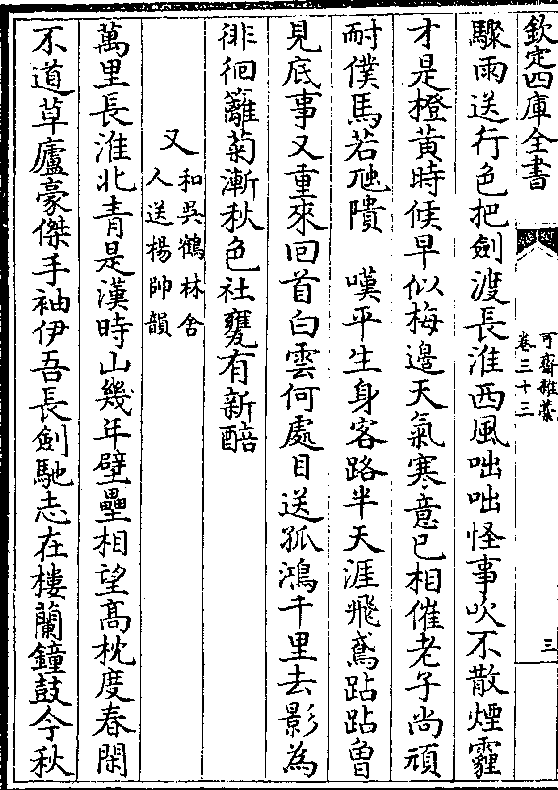 欽定四庫全書
可齋雜藁
卷三十三
三
驟雨送行色把劍渡長淮西風咄咄怪事吹不散煙霾
才是橙黃時候早似梅邊天氣寒意已相催老子尚頑
耐僕馬若虺隤　嘆平生身客路半天涯飛鳶跕跕曾
見底事又重來回首白雲何處目送孤鴻千里去影為
徘徊籬菊漸秋色社甕有新醅
又和吳鶴林舍
人送楊帥韻
萬里長淮北青是漢時山幾年壁壘相望高枕度春閑
不道草廬豪傑手袖伊吾長劍馳志在樓蘭鐘鼓今秋